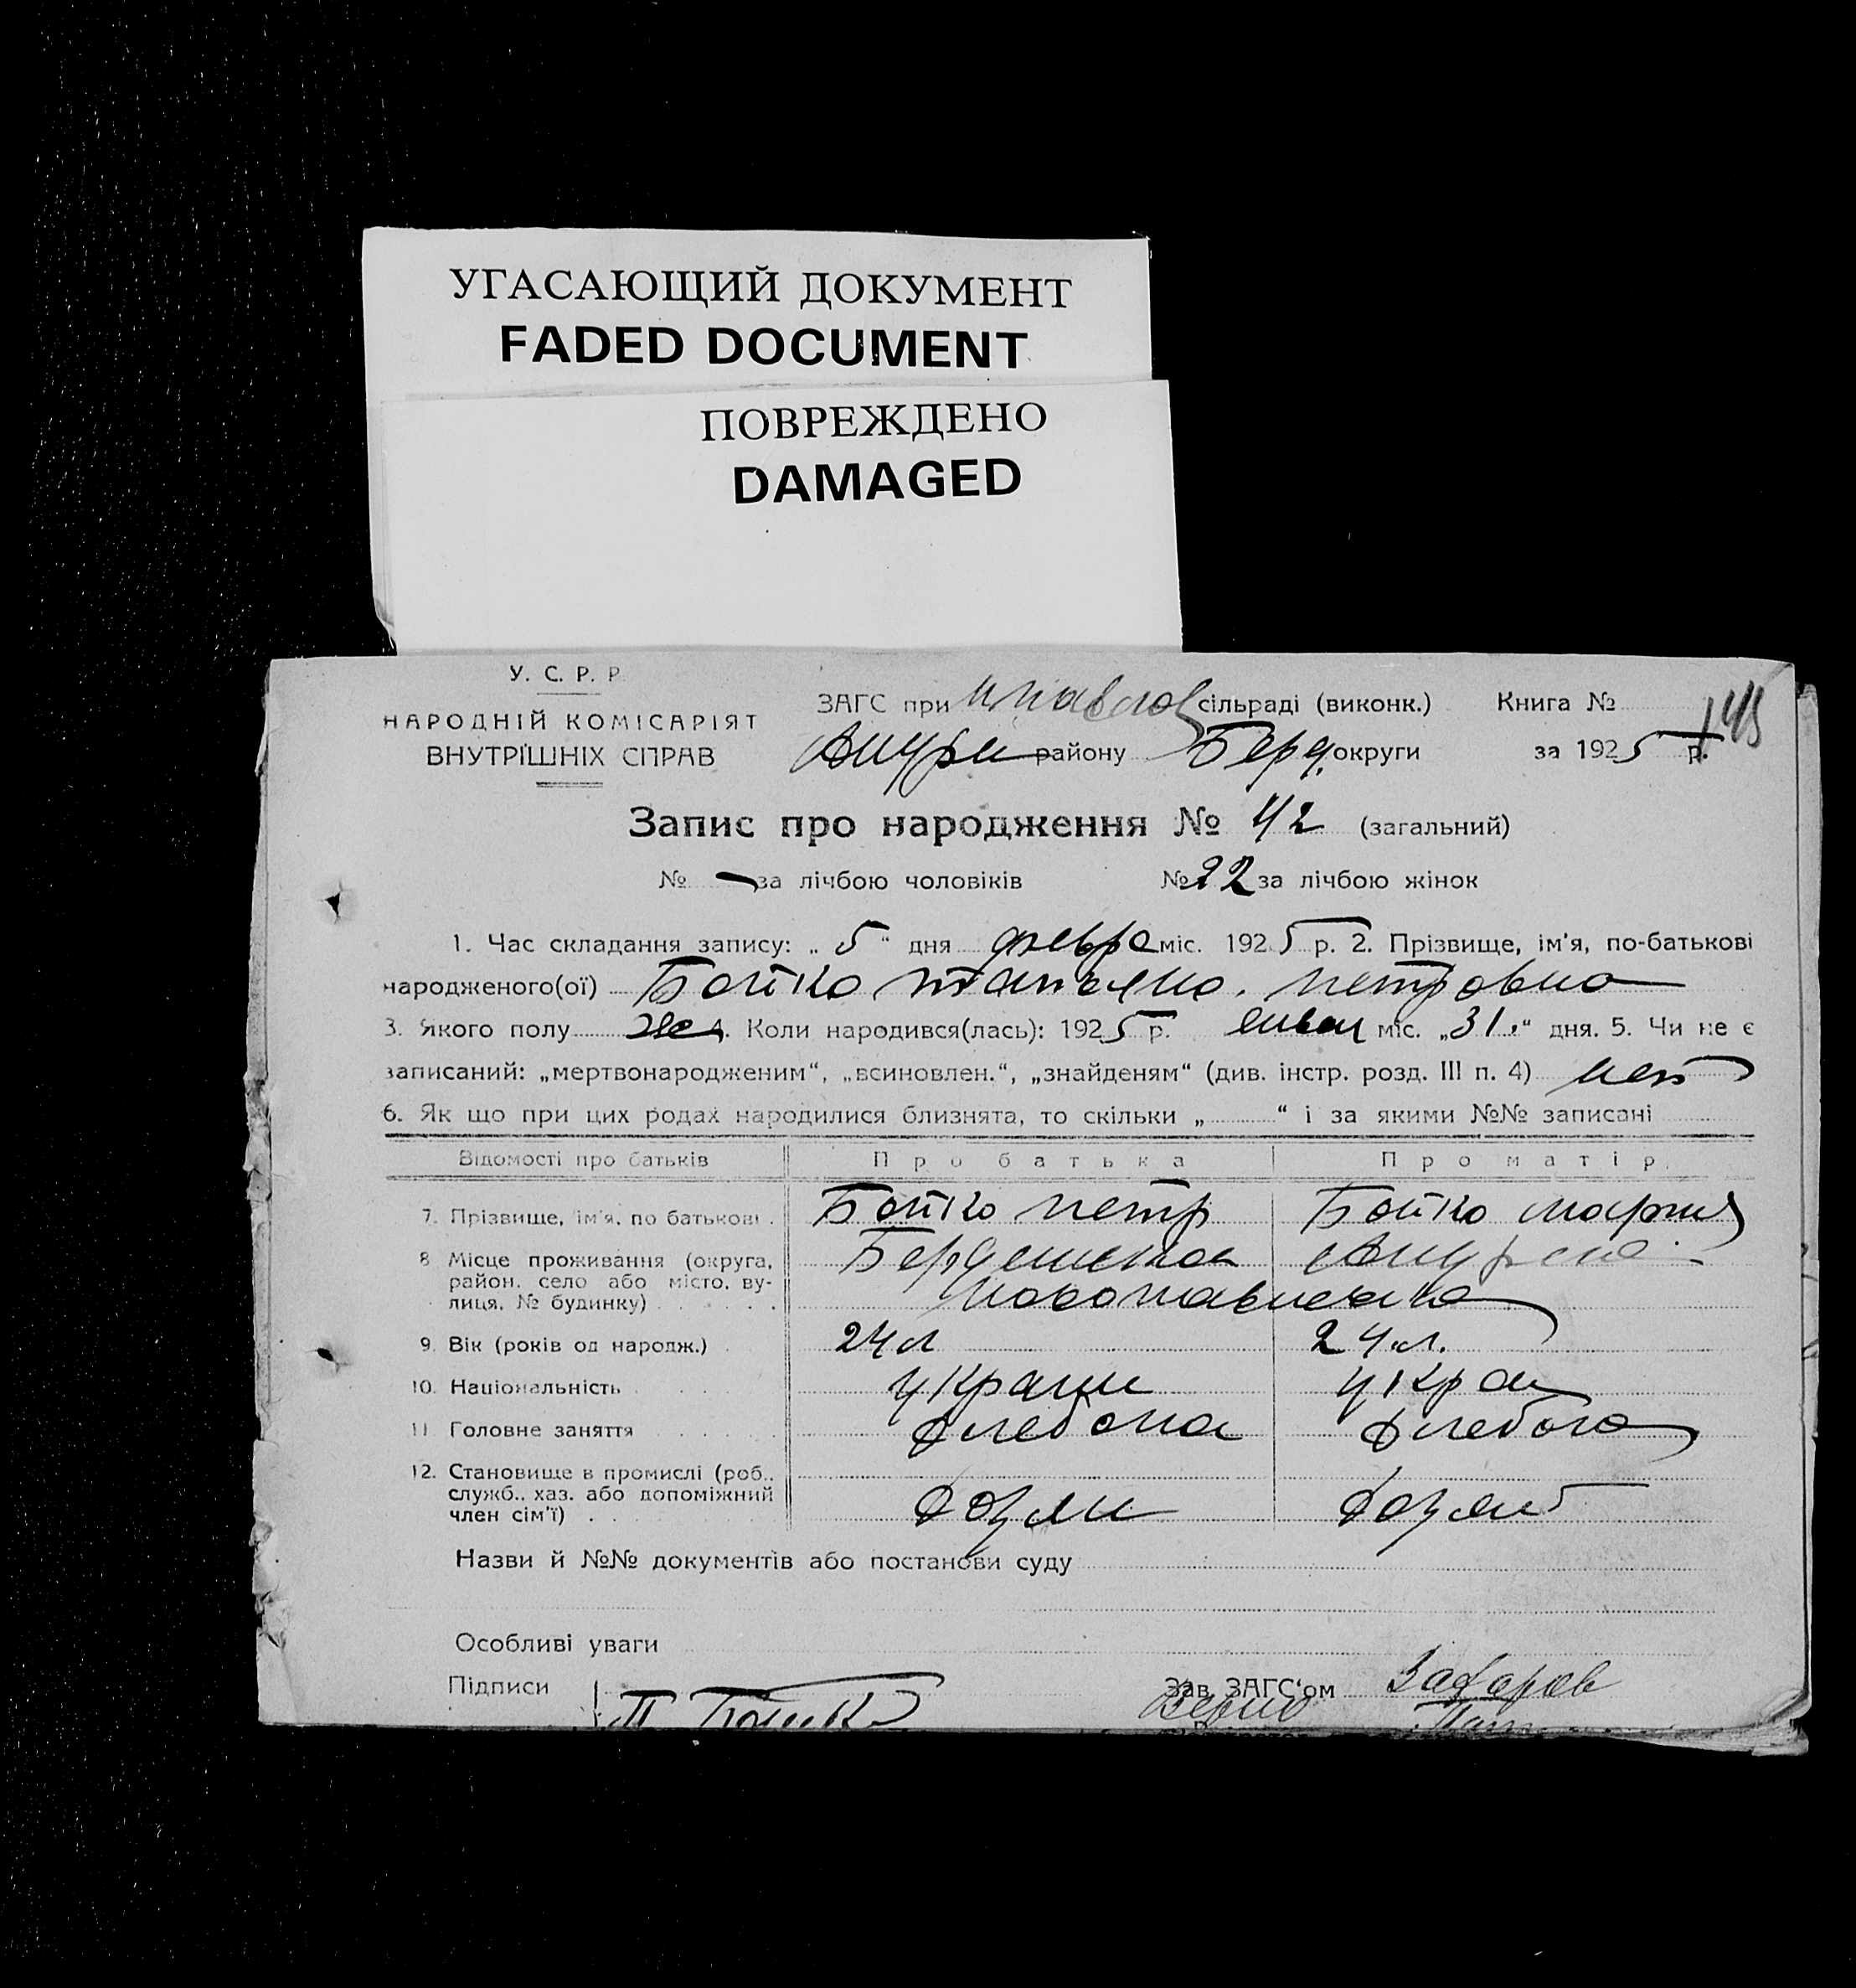 УГАСАЮЩИЙ ДОКУМЕНТ
FADED DOCUMENT
ПОВРЕЖДЕНО
DAMAGED
У. С. Р. Р
НАРОДНІЙ КОМІСАРІЯТ
ВНУТРІШНІХ СПРАВ
ЗАГС при сільраді (виконк.) Книга №
району Берд. округи за 1925 р.
Запис про народження № 42 (загальний)
№ — за лічбою чоловіків № 22 за лічбою жінок
1. Час складання запису: „ 5 “ дня февра міс. 1925 р. 2. Прізвище, ім'я, по-батькові
народженого(ої) Бойко Татьяна Петровна
3. Якого полу же 4. Коли народився(лась): 1925 р. январ міс. „31“ дня. 5. Чи не є
записаний: „мертвонародженим“, „всиновлен.“, „знайденям“ (див. інстр. розд. III п. 4) нет
6. Як що при цих родах народилися близнята, то скільки „ “ і за якими №№ записані
Відомості про батьків Про батька Про матір
7. Прізвище, ім'я, по батькові Бойко Петр Бойко Мария
8 Місце проживання (округа,
район, село або місто, ву-
лиця, № будинку)
Новопавловка
9. Вік (років од народж.) 24 л 24 л.
10. Національність украин украи
11 Головне заняття
12. Становище в промислі (роб.,
служб., хаз. або допоміжний
член сім'ї)
Назви й №№ документів або постанови суду
Особливі уваги
Підписи П Бойко Зав. ЗАГС'ом
Верно